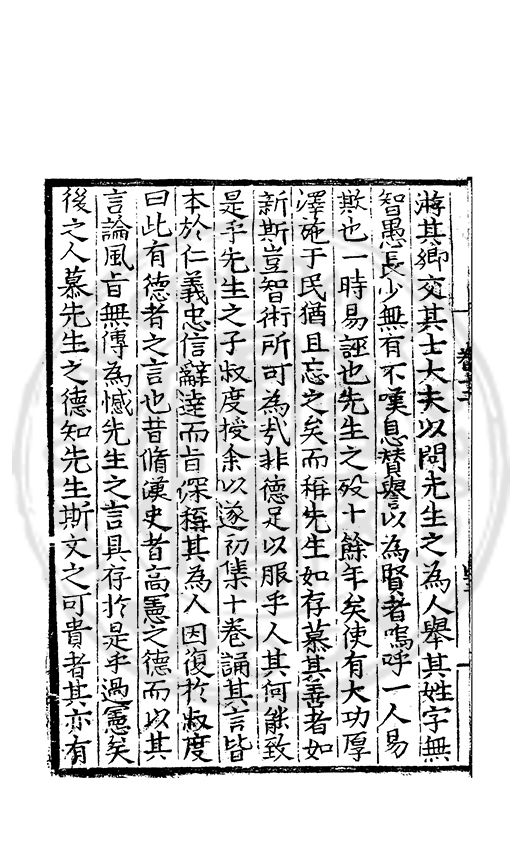 游其鄉交其士大夫以問先生之為人舉其姓字無
智愚長少無有不嘆息賛譽以為賢者嗚呼一人易
欺也一時易誣也先生之歿十餘年矣使有大功厚
澤施于民猶且忘之矣而稱先生如存慕其善者如
新斯豈智術所可為㢤非德足以服乎人其何能致
是乎先生之子叔度授余以遂初集十卷誦其言皆
本於仁義忠信辭達而旨深稱其為人因復於叔度
曰此有德者之言也昔脩漢史者高憲之德而以其
言論風旨無傳為憾先生之言具存於是乎過憲矣
後之人慕先生之德知先生斯文之可貴者其亦有